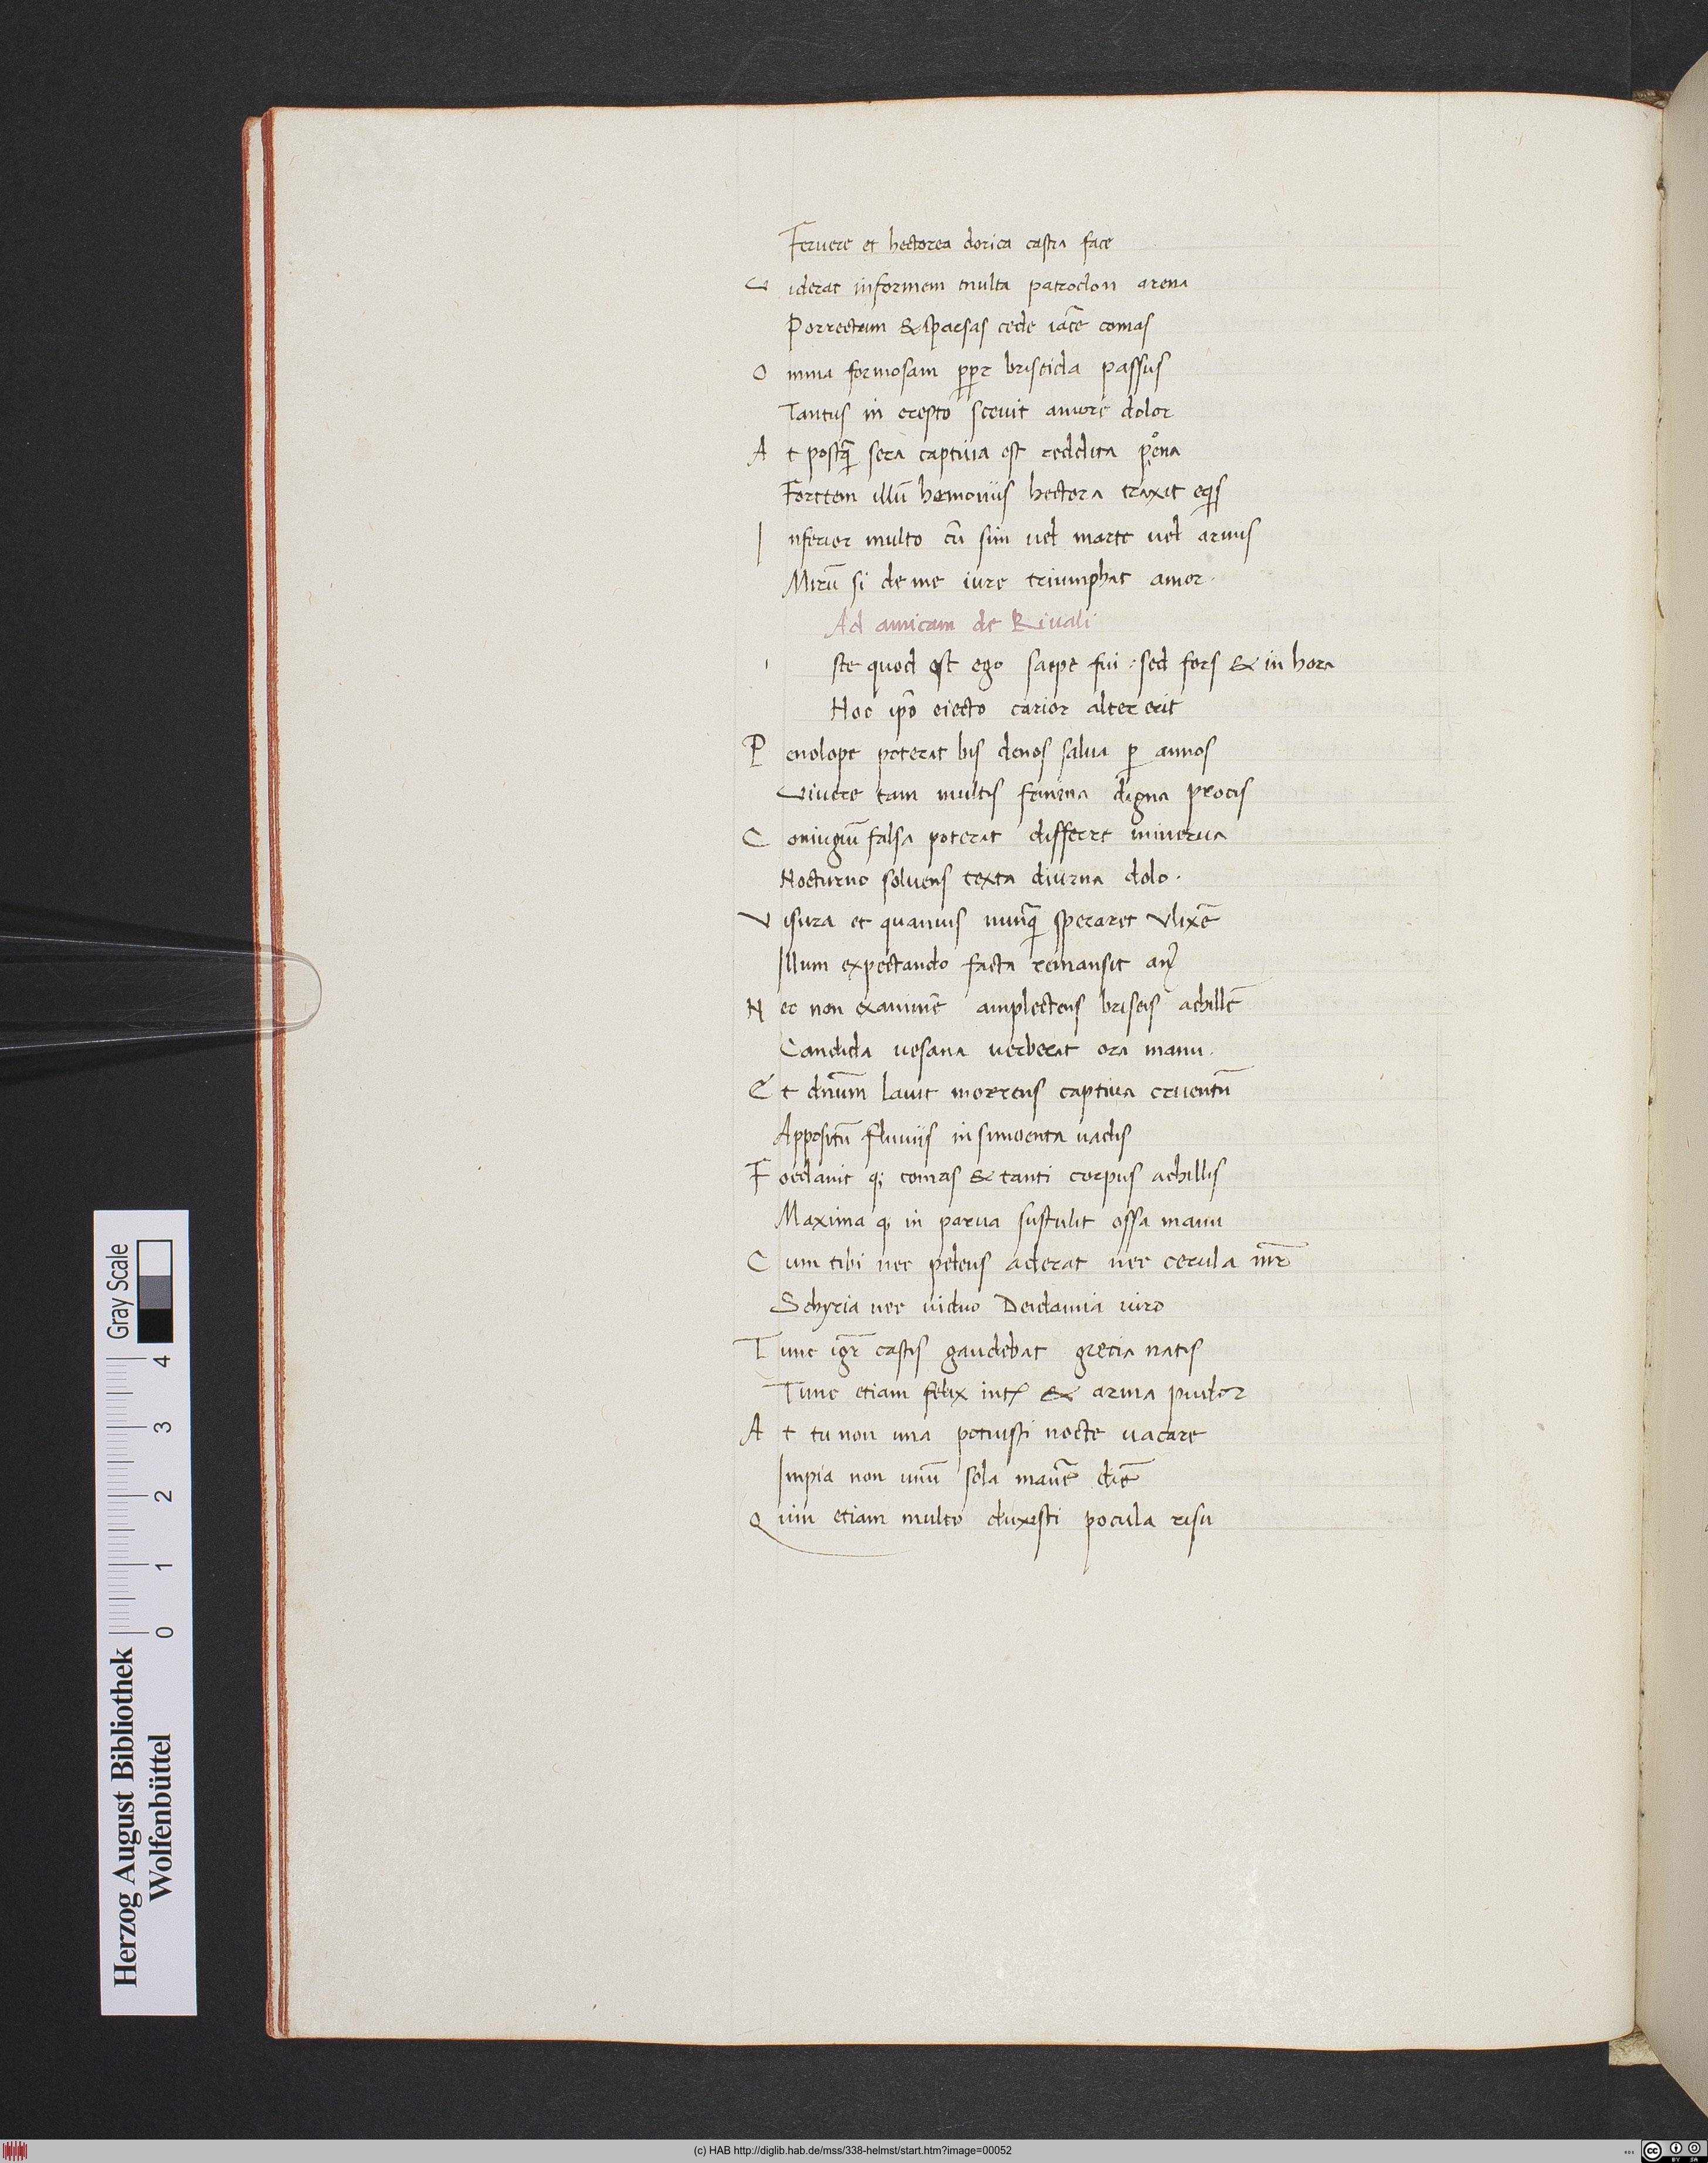 Feruere et hectorea dorica castra face
V iderat informem multa patroclon arena
Porrectum & sparsas cede iacē comas
O mnia formosam ꝓpr briseida passus
Tantus in erepto scevit amore dolor
A t postq̄ sera captiua est reddita pena
Forttem illū hemoniis hectora traxit eqs
I nferior multo cū sim uel marte uel armis
Mirū si de me iure triumphat amor.
Ad amicam de Riuali
I ste quod est ego saepe fui : sed fors & in hora
Hoc ipō eiecto carior alter erit
P enolope poterat bis denos salua ꝑ annos
Viuere tam multis femina digna procis
C oniugiū falsa poterat differre minerua
Nocturno soluens texta diurna dolo.
V isura et quamuis nunq̄ speraret Vlixē
Illum expectando facta remansit an
N ec non exanimē amplectens briseis achillē
Candida vesana verberat ora manu.
E t dn̄um lauit merrens captiua cruentū
Appositū fluuiis in simoenta uadis
F oedauit q; comas & tanti corpus achillis
Maxima q; in parua sustulit ossa manu
C um tibi nec peleus aderat nec cerula mr̄
Schyria nec uiduo Deidamia uiro
T unc igr̄ castis gaudebat grecia natis
Tunc etiam felix int & arma pudor
A t tu non una potuisti nocte uacare
Impia non unū sola manē diē
Q uin etiam multo duxisti pocula risu
Herzog August Bibliothek
Wolfenbüttel
0 1 2 3 4
Gray Scale
(c) HAB http://diglib.hab.de/mss/338-helmst/start.htm?image=00052
cc BY SA